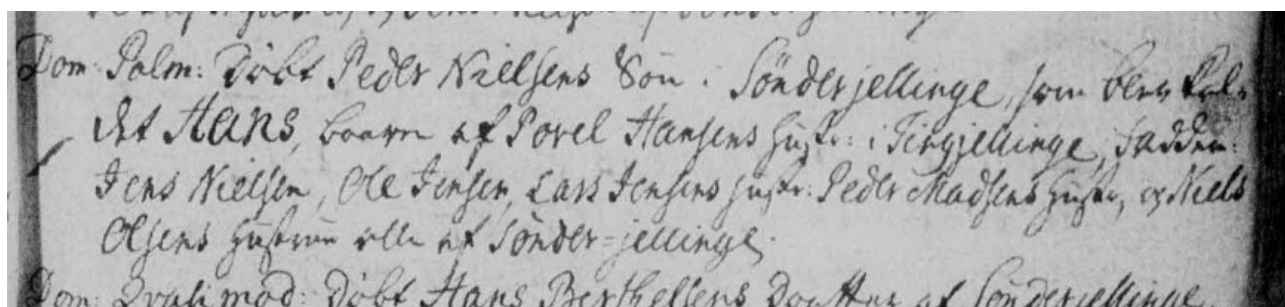 Dom: Palm: Døbt Peder Nielsens Søn i Sønderjellinge, som blev kal-
det Hans, baaren af Povel Hansens Hustr: i Tingjellinge, Fadder:
Jens Nielsen, Ole Jensen, Lars Jensens Hustr: Peder Madsens Hustr, og Niels
Olsens Hustrue alle af Sønder=jellinge.
Dom: Qvasimod: Døbt Hans Berthelsens Daatter af Sønderjellinge